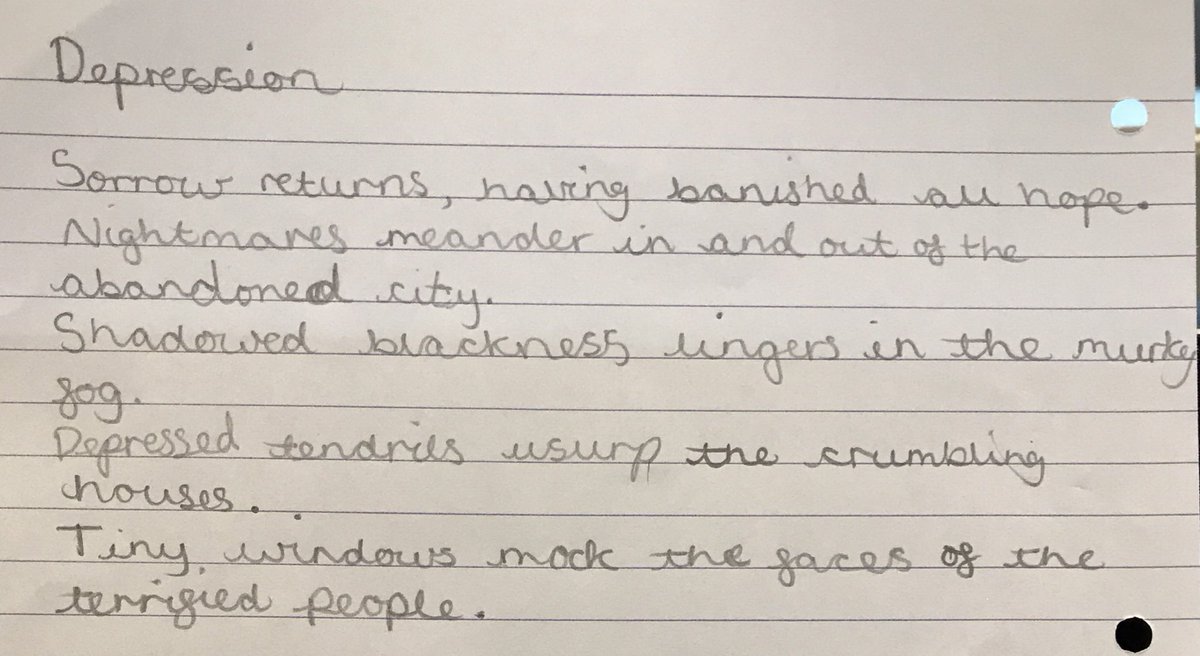 Depression
Sorrow returns, having banished all hope.
Nightmares meander in and out of the
abandoned city.
Shadowed blackness lingers in the murky
fog.
Depressed tendrils usurp the crumbling
houses.
Tiny windows mock the faces of the
terrified people.